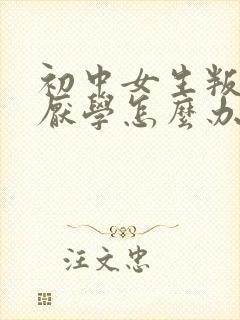 初中女生叛
厭學怎麼办
汪文忠